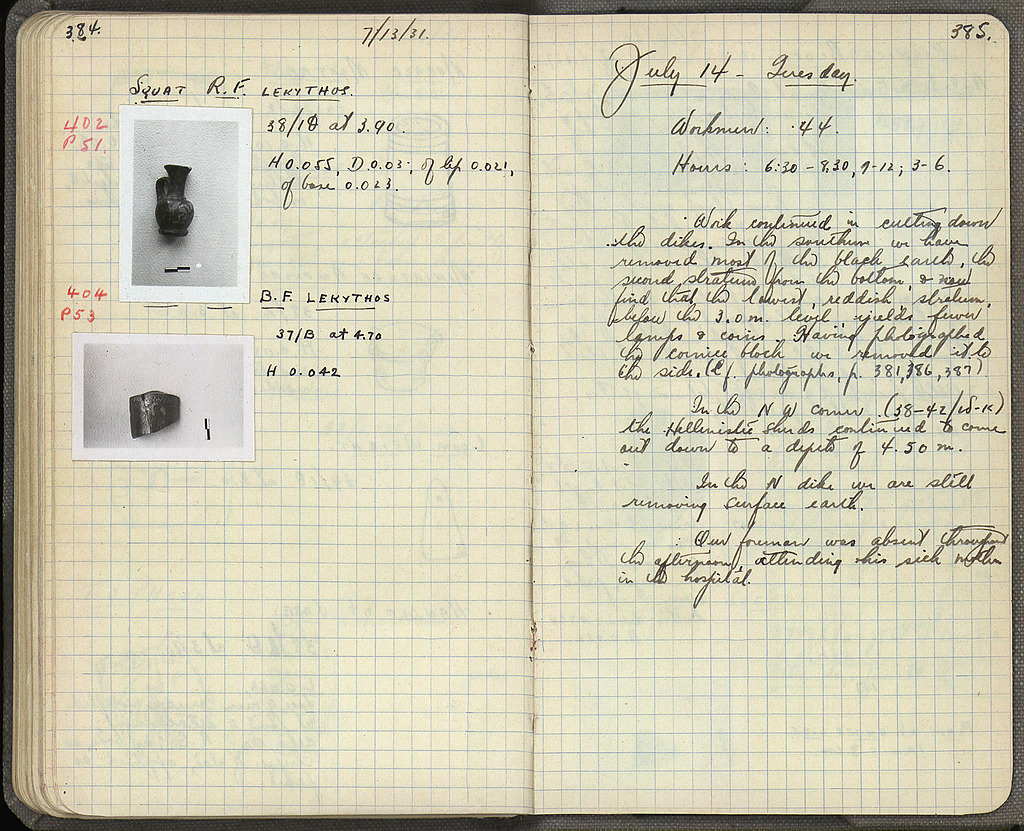 384.
7/13/31.
SQUAT R.F. LEKYTHOS.
402
P 51.
38/ at 3.90.
H 0.055, D. 0.03; of lip 0.021,
of base 0.023.
404
P 53
B.F. LEKYTHOS
37/B at 4.70
H 0.042
385.
July 14 - Tuesday.
Workmen: 44.
Hours: 6:30 - 8:30, 9-12; 3-6.
Work continued in cutting down
the dikes. In the southern we have
removed most of the black earth, the
second stratum from the bottom, & now
find that the lowest, reddish stratum,
below the 3.0 m. level, yields fewer
lamps & coins. Having photographed
the cornice block we removed it to
the side. (Cf. photographs, p. 381, 386, 387)
In the N W corner (38-42/ιδ-κ)
the Hellenistic sherds continued to come
out down to a depth of 4.50 m.
In the N dike we are still
removing surface earth.
Our foreman was absent throughout
the afternoon, attending his sick mother
in the hospital.